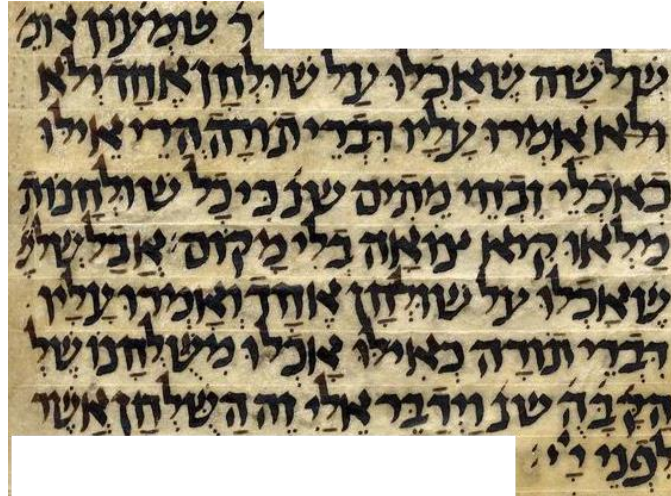 ר׳ שמעון אומ׳
שלשה שאכלו על שולחן אחד ולא
ולא אמרו עליו דברי תורה הרי אילו
כאכלי זבחי מתים שנ׳ כי כל שולחנות
מלאו קיא צואה בלי מקום אבל שלש׳
שאכלו על שולחן אחד ואמרו עליו
דברי תורה כאילו אכלו משלחנו של
הקבה שנ׳ וידבר אלי זה השלחן אשר
לפני ייי: